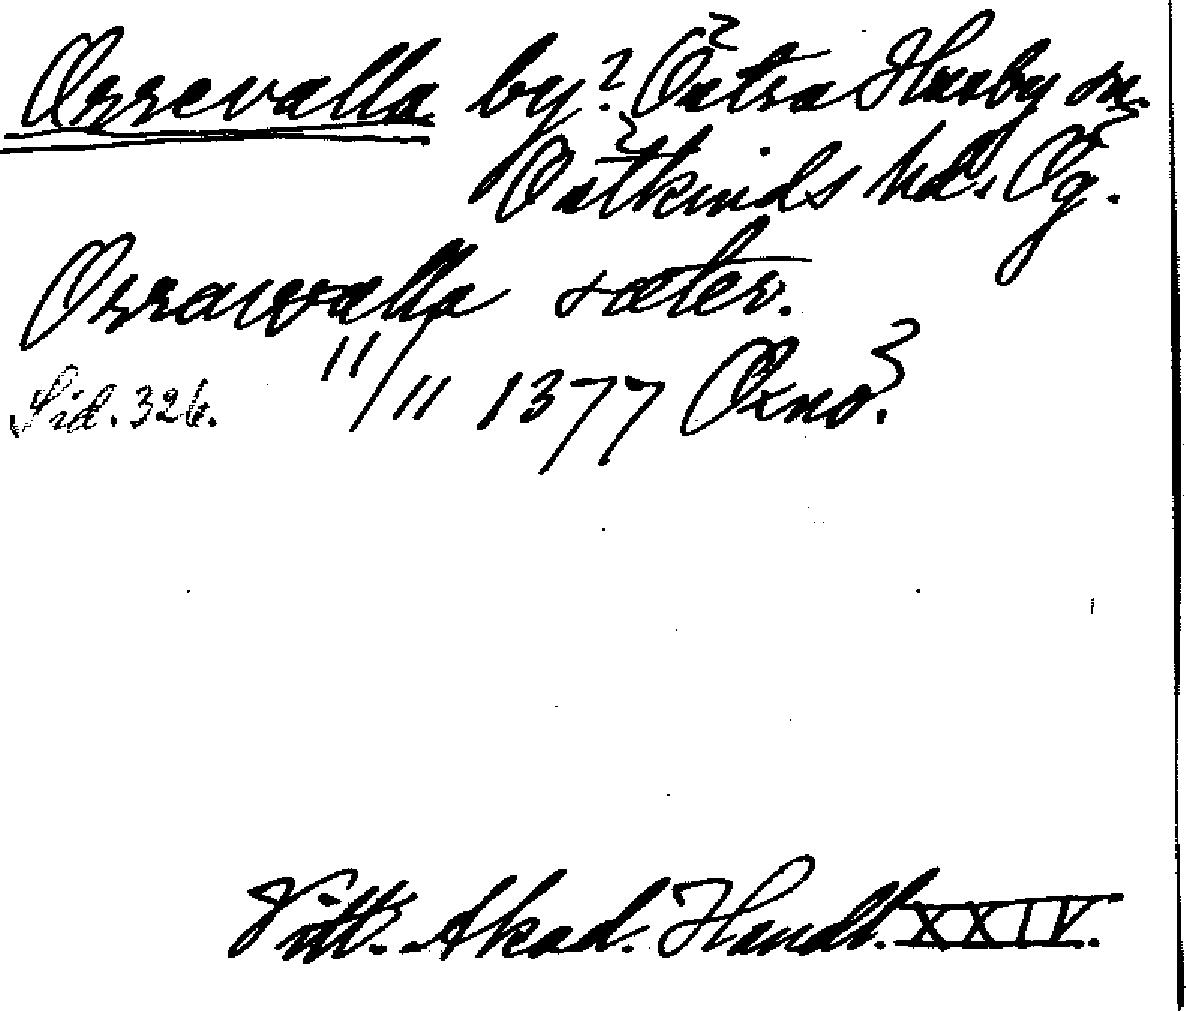 Orrevalla by? Östra Husby sn.
Östkinds hd. Ög.
Orrawalla sæter.
11/11 1377 Oxnö.
Sid. 326.
Vitt. Akad. Handl. XXIV.